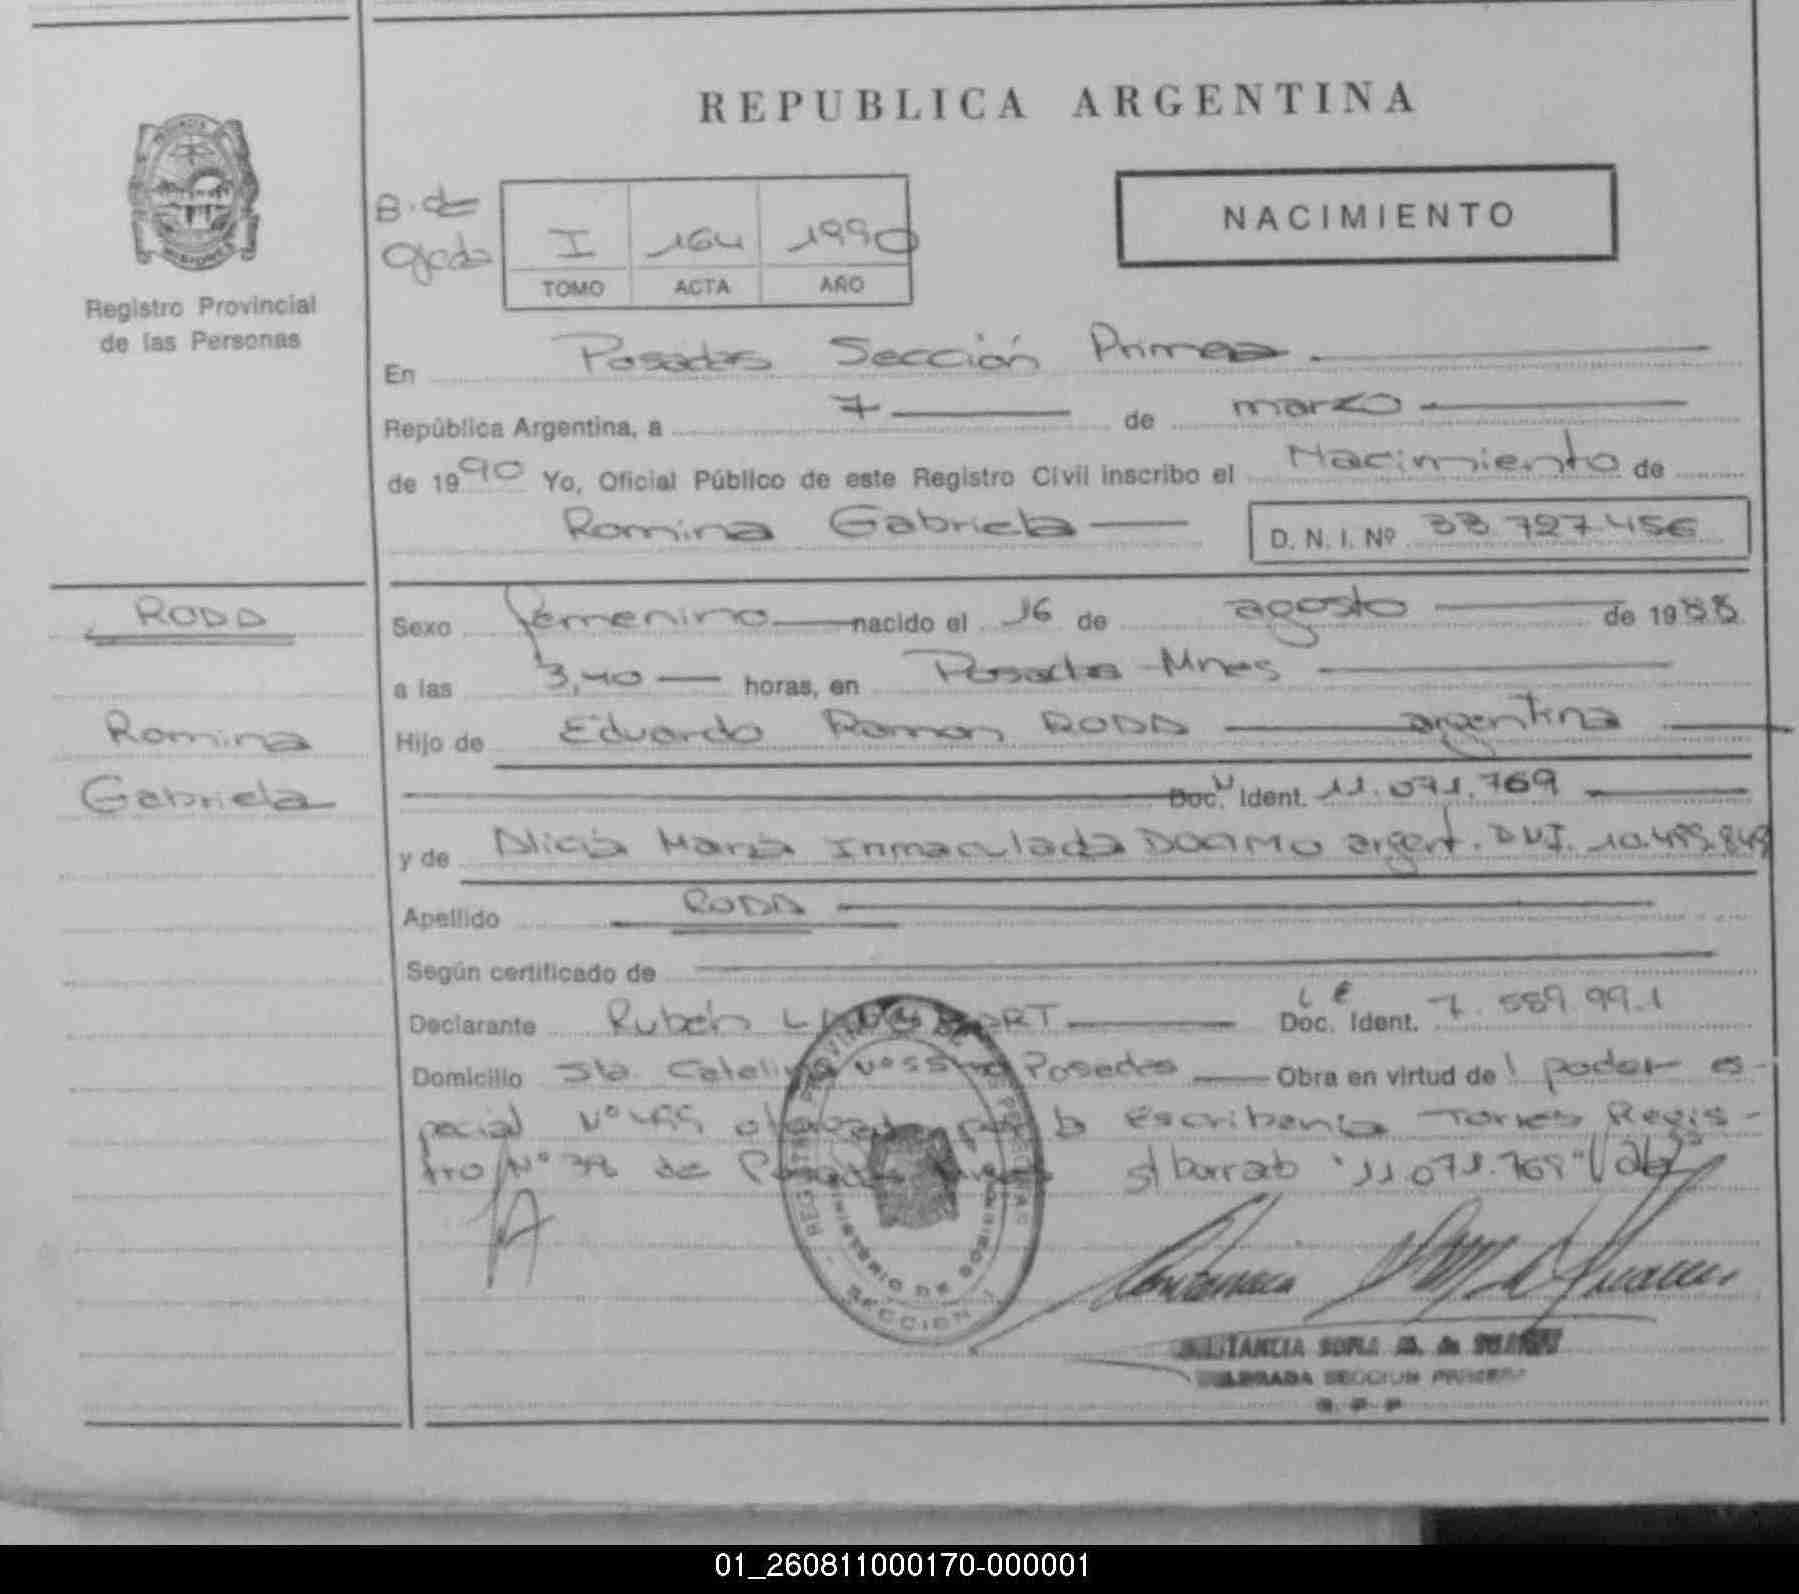 REPUBLICA ARGENTINA
Registro Provincial
de las Personas
B. de
I 164 1990
TOMO ACTA AÑO
NACIMIENTO
En Posadas Sección Primera
República Argentina, a 7 de marzo
de 1990 Yo, Oficial Público de este Registro Civil inscribo el Nacimiento de
Romina Gabriela D. N. I. Nº 33.727.456
RODA
Romina
Gabriela
Sexo femenino nacido el 16 de agosto de 1988
a las 3,40 horas, en Posadas Mnes
Hijo de Eduardo Ramon RODA argentina
Doc. Ident. 11.071.769
y de Alicia Maria Inmaculada argent. DNI.
Apellido RODA
Según certificado de
Declarante Ruben Doc. Ident. 7.589.991
Domicilio Sta. Catalina Posadas Obra en virtud de 1 poder es-
pecial Nº por la Escribania Torres Regis-
tro Nº 38 de Posadas s/ borrado "11.071.769"
REGISTRO PROVINCIAL DE LAS PERSONAS
MINISTERIO DE GOBIERNO
SECCION 1
SECCION PRIMERA
01_260811000170-000001